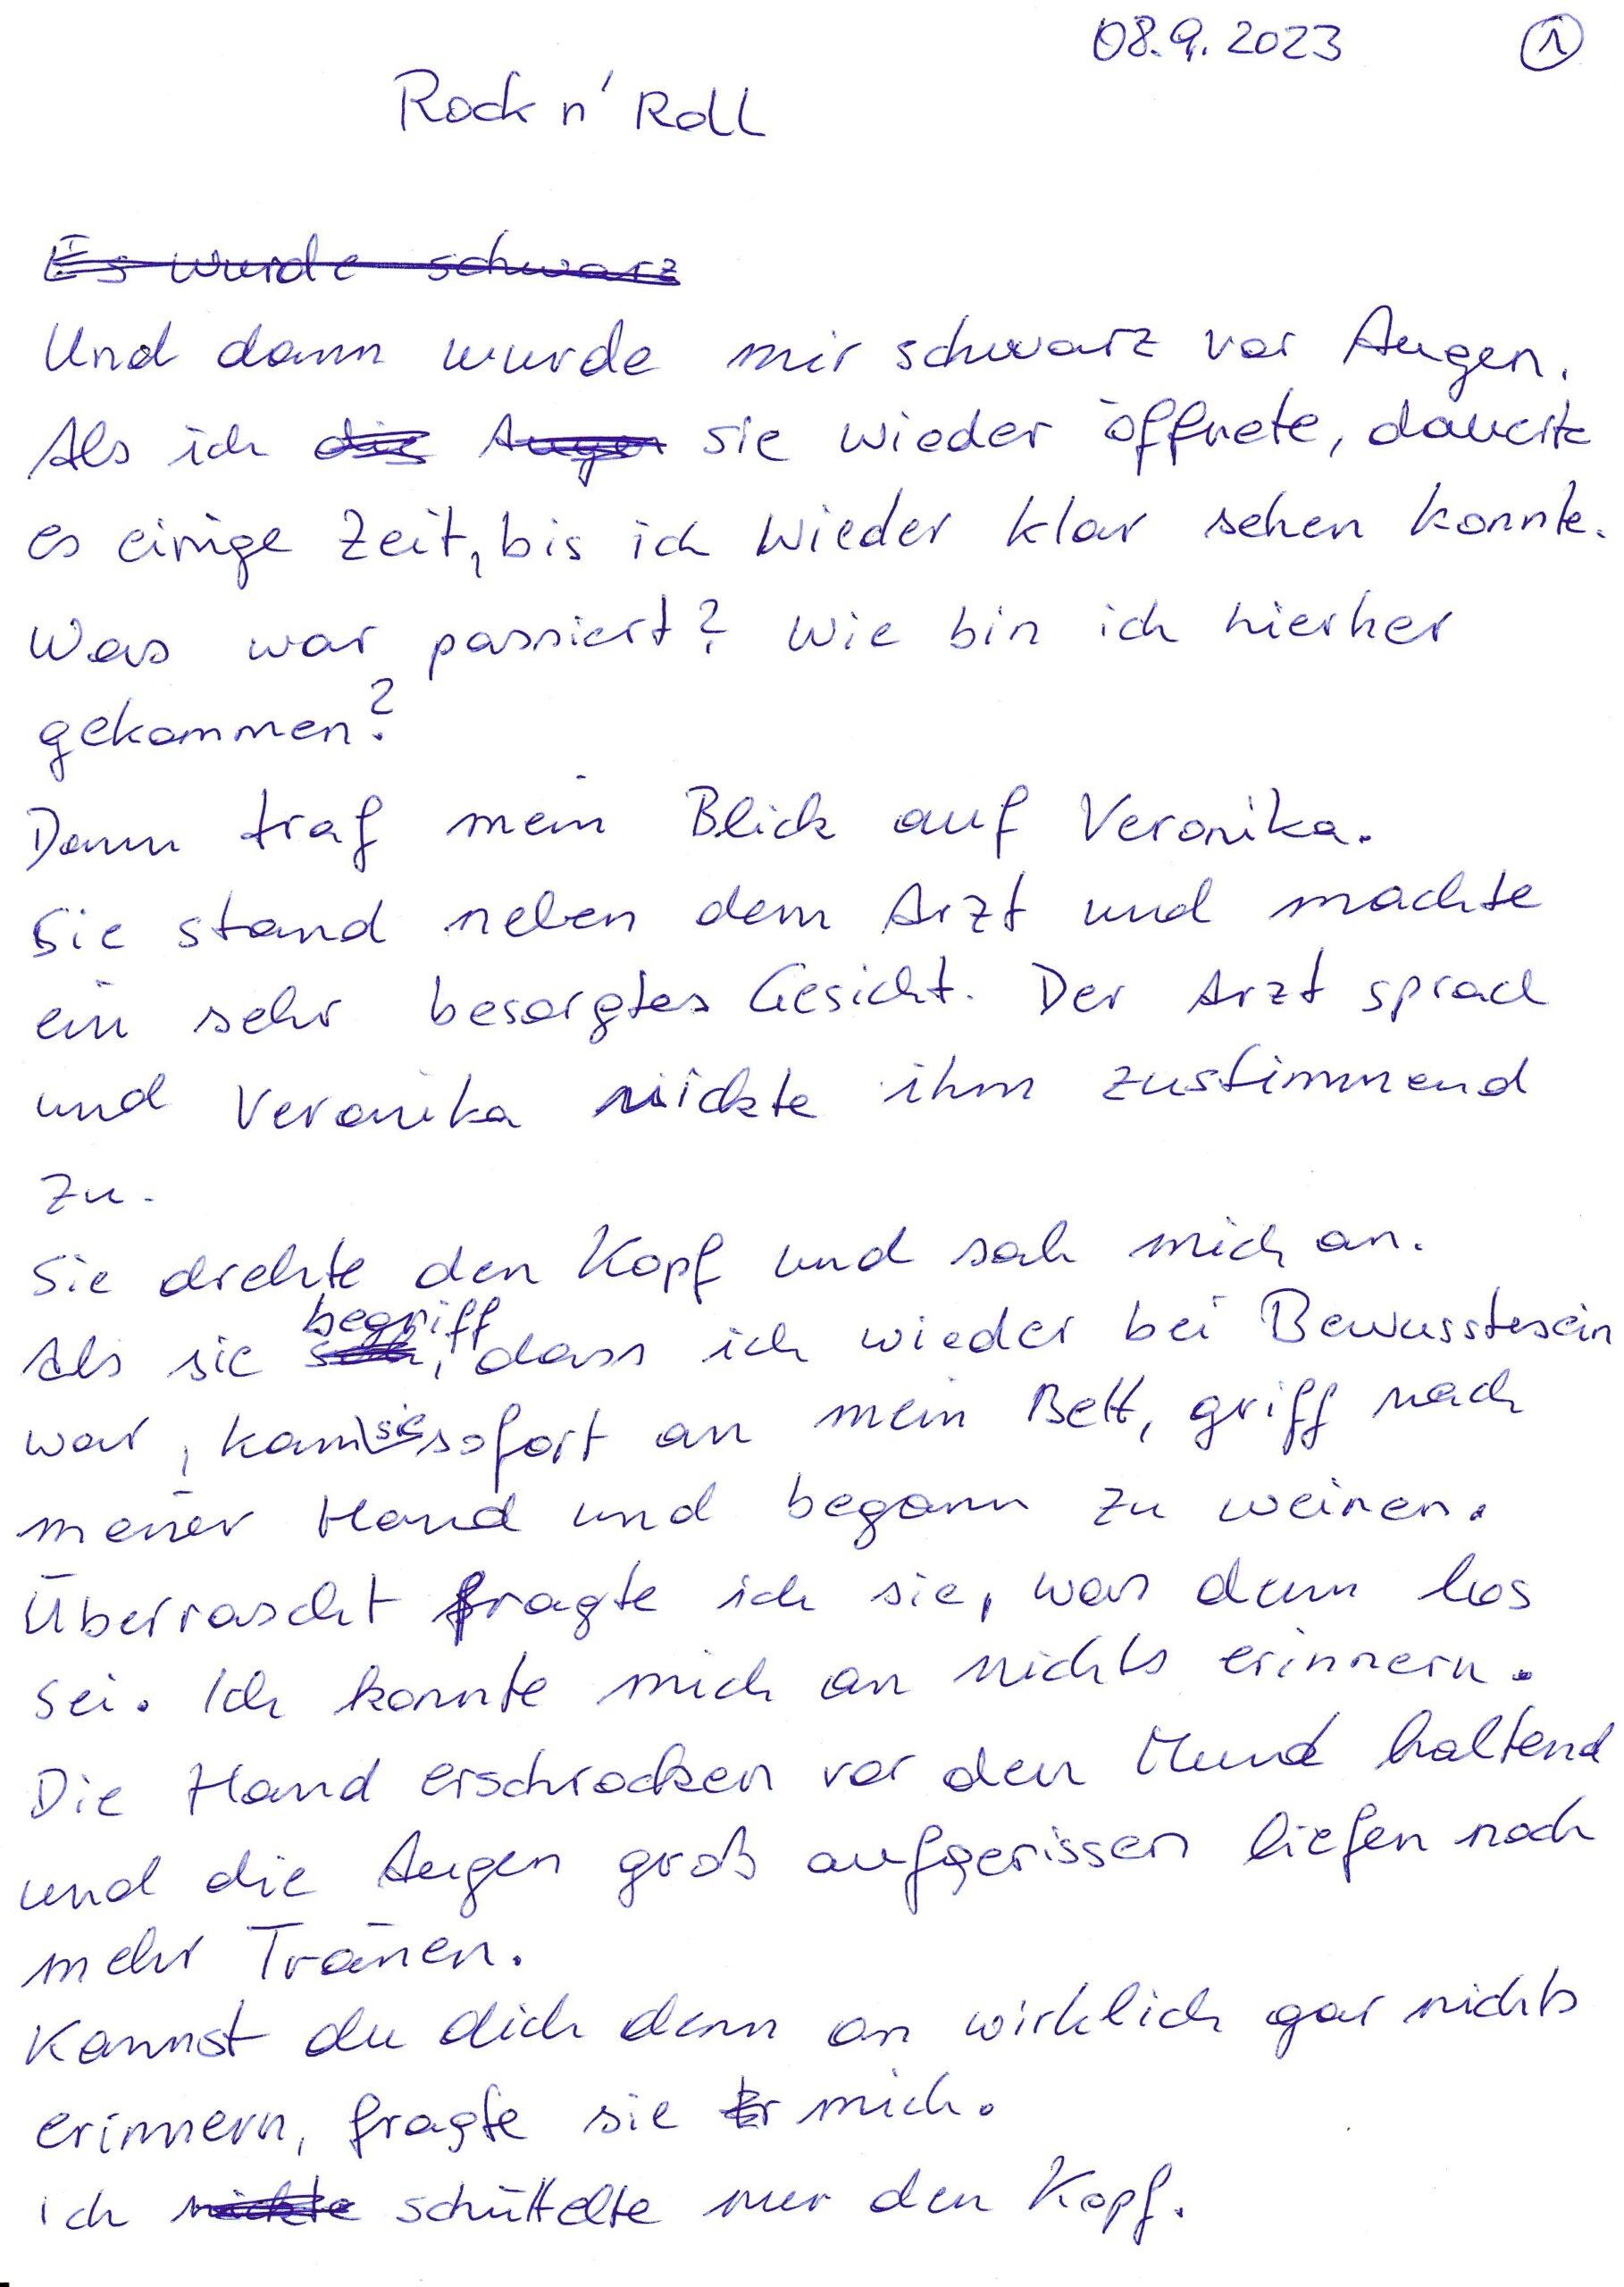 08.9.2023 1
Rock n' Roll
Es wurde schwarz
Und dann wurde mir schwarz vor Augen.
Als ich die Augen sie wieder öffnete, dauerte
es einige Zeit, bis ich wieder klar sehen konnte.
Was war passiert? Wie bin ich hierher
gekommen?
Dann traf mein Blick auf Veronika.
Sie stand neben dem Arzt und machte
ein sehr besorgtes Gesicht. Der Arzt sprach
und Veronika nickte ihm zustimmend
zu.
Sie drehte den Kopf und sah mich an.
begriff
Als sie sah, dass ich wieder bei Bewusstesein
war, kam sie sofort an mein Bett, griff nach
meiner Hand und begann zu weinen.
Überrascht fragte ich sie, was denn los
sei. Ich konnte mich an nichts erinnern.
Die Hand erschrocken vor den Mund haltend
und die Augen groß aufgerissen liefen noch
mehr Tränen.
Kannst du dich denn an wirklich gar nichts
erinnern, fragte sie Er mich.
ich nickte schüttelte nur den Kopf.